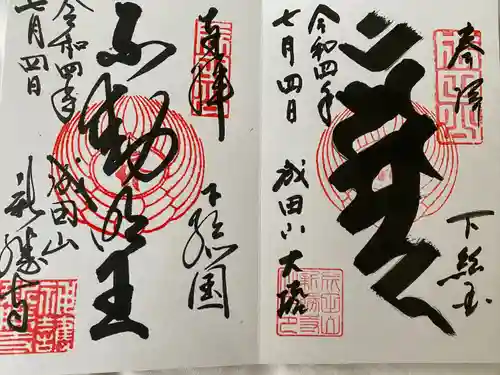 奉拝
下総国
令和四年
七月四日
成田山 大塔
奉拝
下総国
不動明王
令和四年
七月四日
成田山
新勝寺